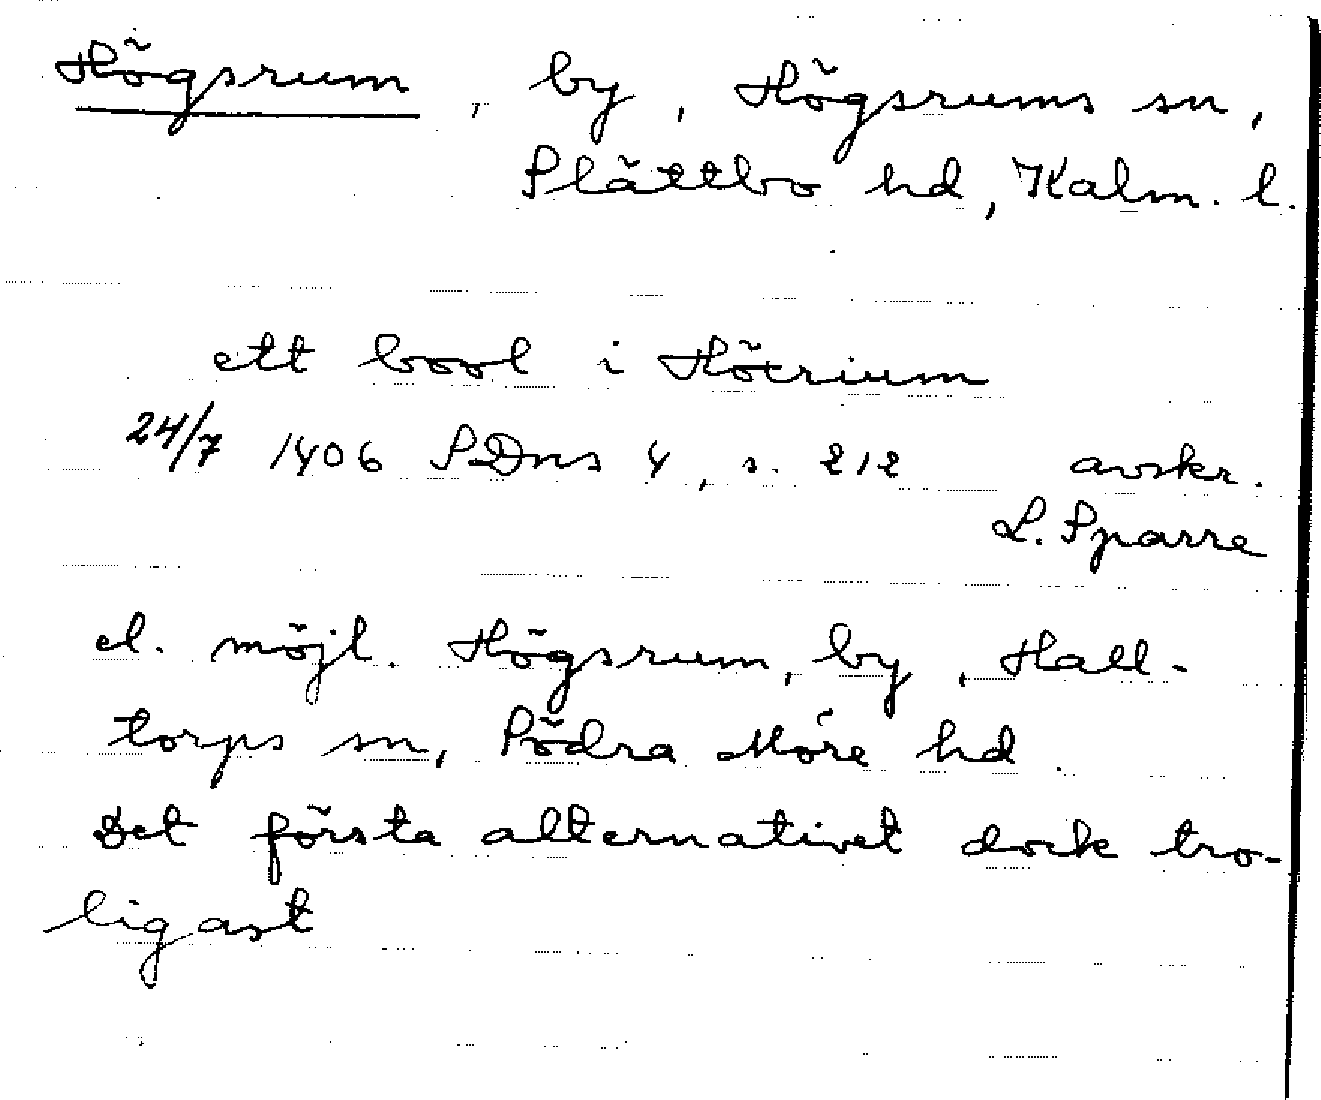 Högsrum, by, Högsrums sn,
Slättbo hd, Kalm. l.
ett bool i Höcrium
24/7 1406 SDns 4, s. 212 avskr.
L. Sparre
el. möjl. Högsrum, by, Hall-
torps sn, Södra Möre hd.
Det första alternativet dock tro-
ligast